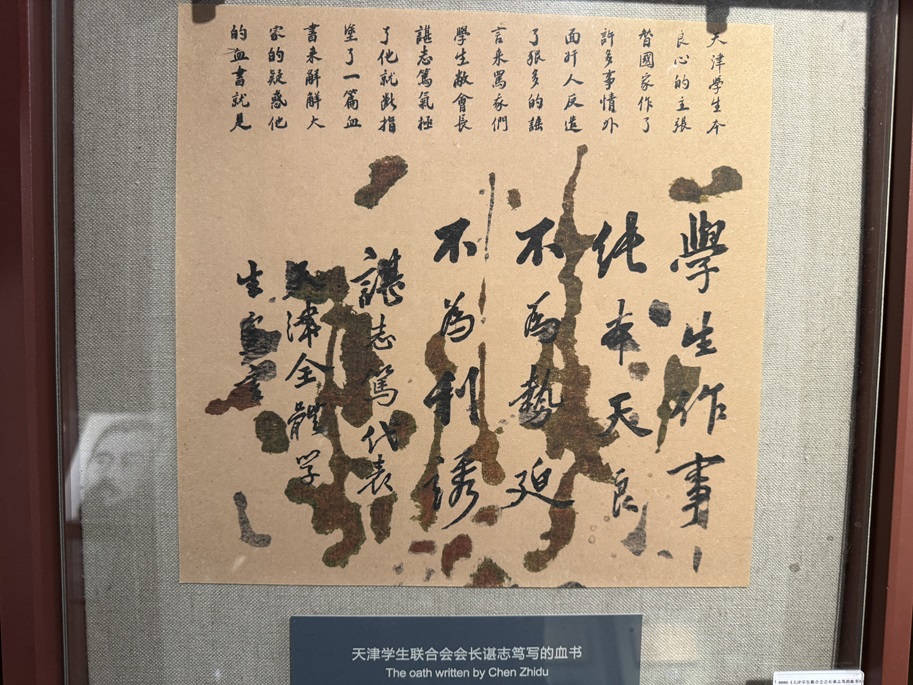 天津學生本
良心的主張
替國家作了
許多事情外
面奸人反造
了很多的謠
言来罵我們
學生敝會長
諶志篤氣極
了他就断指
塗了一篇血
書来解解大
家的疑惑他
的血書就是
學生作事
純本天良
不為勢廹
不為利誘
諶志篤代表
天津全體学
生宣言
天津学生联合会会长谌志笃写的血书
The oath written by Chen Zhidu